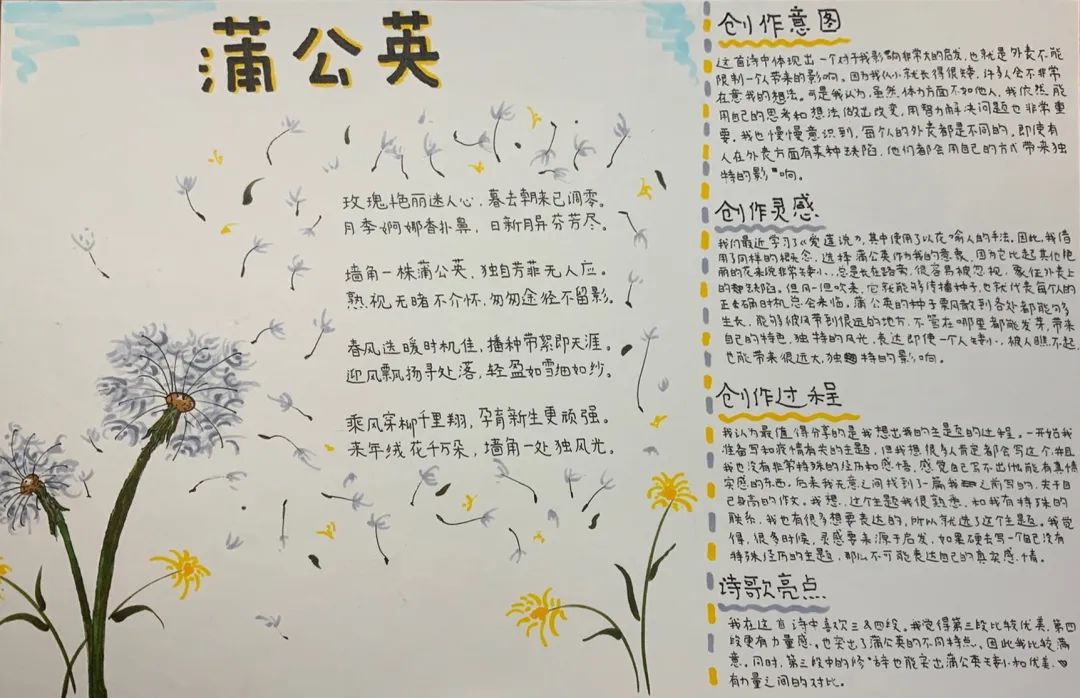 蒲公英
玫瑰艳丽迷人心,暮去朝来已凋零。
月季婀娜香扑鼻,日新月异芬芳尽。
墙角一株蒲公英,独自芳菲无人应。
熟视无睹不介怀,匆匆途径不留影。
春风送暖时机佳,播种带絮即天涯。
迎风飘扬寻处落,轻盈如雪细如纱。
乘风穿柳千里翔,孕育新生更顽强。
来年绒花千万朵,墙角一处独风光。
创作意图
这首诗中体现出一个对于我影响非常大的启发,也就是外表不能
限制一个人带来的影响。因为我从小就长得很矮,许多人会不非常
在意我的想法。可是我认为,虽然体力方面不如他人,我依然能
用自己的思考和想法做出改变,用智力解决问题也非常重
要。我也慢慢意识到,每个人的外表都是不同的。即使有
人在外表方面有某种缺陷,他们都会用自己的方式带来独
特的影响。
创作灵感
我们最近学习了《爱莲说》,其中使用了以花喻人的手法。因此,我借
用了同样的概念,选择蒲公英作为我的意象,因为它比起其他艳
丽的花来说非常矮小,总是长在路旁,很容易被忽视,象征外表上
的缺陷。但风一但吹来,它就能够传播种子,也就代表每个人的
正确时机总会来临。蒲公英的种子飘散到各处都能够
生长,能够被风带到很远的地方,不管在哪里都能发芽,带来
自己的特色,独特的风光,表达即使一个人矮小,被人瞧不起,
也能带来很远大,独特的影响。
创作过程
我认为最值得分享的是我想出我的主题的过程。一开始我
准备写和疫情有关的主题,但我想很多人肯定都会写这个,并且
我也没有非常特殊的经历和感悟,感觉自己写不出优能有真情
实感的东西。后来我无意之间找到了一篇我之前写的,关于自
己身高的作文。我想,这个主题我很熟悉,和我有特殊的
联系,我也有很多想要表达的,所以就选了这个主题。我觉
得,很多时候,灵感要来源于启发,如果硬去写一个自己没有
特殊经历的主题,那么不可能表达自己的真实感情。
诗歌亮点
我在这首诗中喜欢三&四段。我觉得第三段比较优美,第四
段更有力量感。也突出了蒲公英的不同特点。因此我比较满
意。同时,第三段中的修辞也能突出蒲公英矮小和优美,
有力量之间的对比。